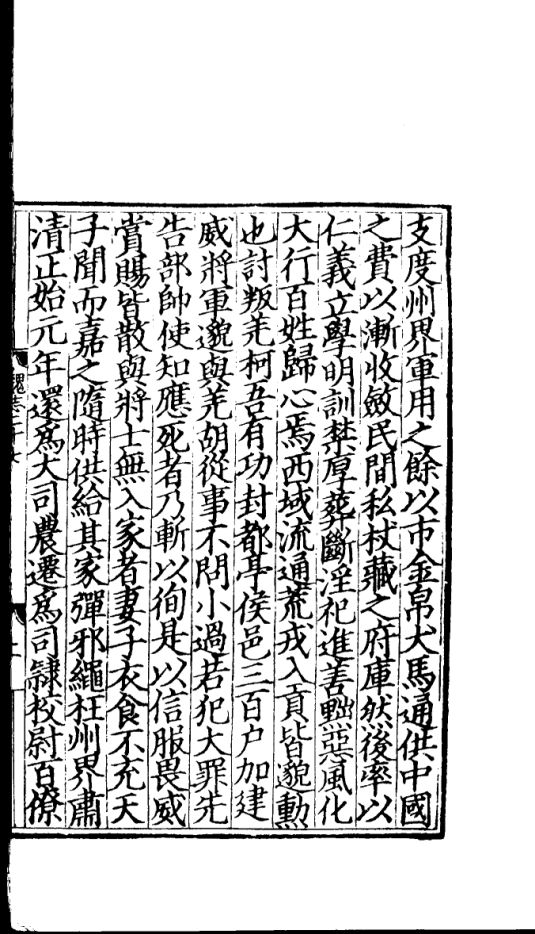 支度州界軍用之餘以市金帛犬馬通供中國
之費以漸收斂民間私杖藏之府庫然後率以
仁義立學明訓禁厚葬斷淫祀進善黜惡風化
大行百姓歸心焉西域流通荒戎入貢皆邈勳
也討叛羌柯吾有功封都亭侯邑三百户加建
威將軍邈與羌胡從事不問小過若犯大罪先
告部帥使知應死者乃斬以徇是以信服畏威
賞賜皆散與將士無入家者妻子衣食不充天
子聞而嘉之隨時供給其家彈邪繩枉州界肅
清正始元年還爲大司農遷爲司隸校尉百僚